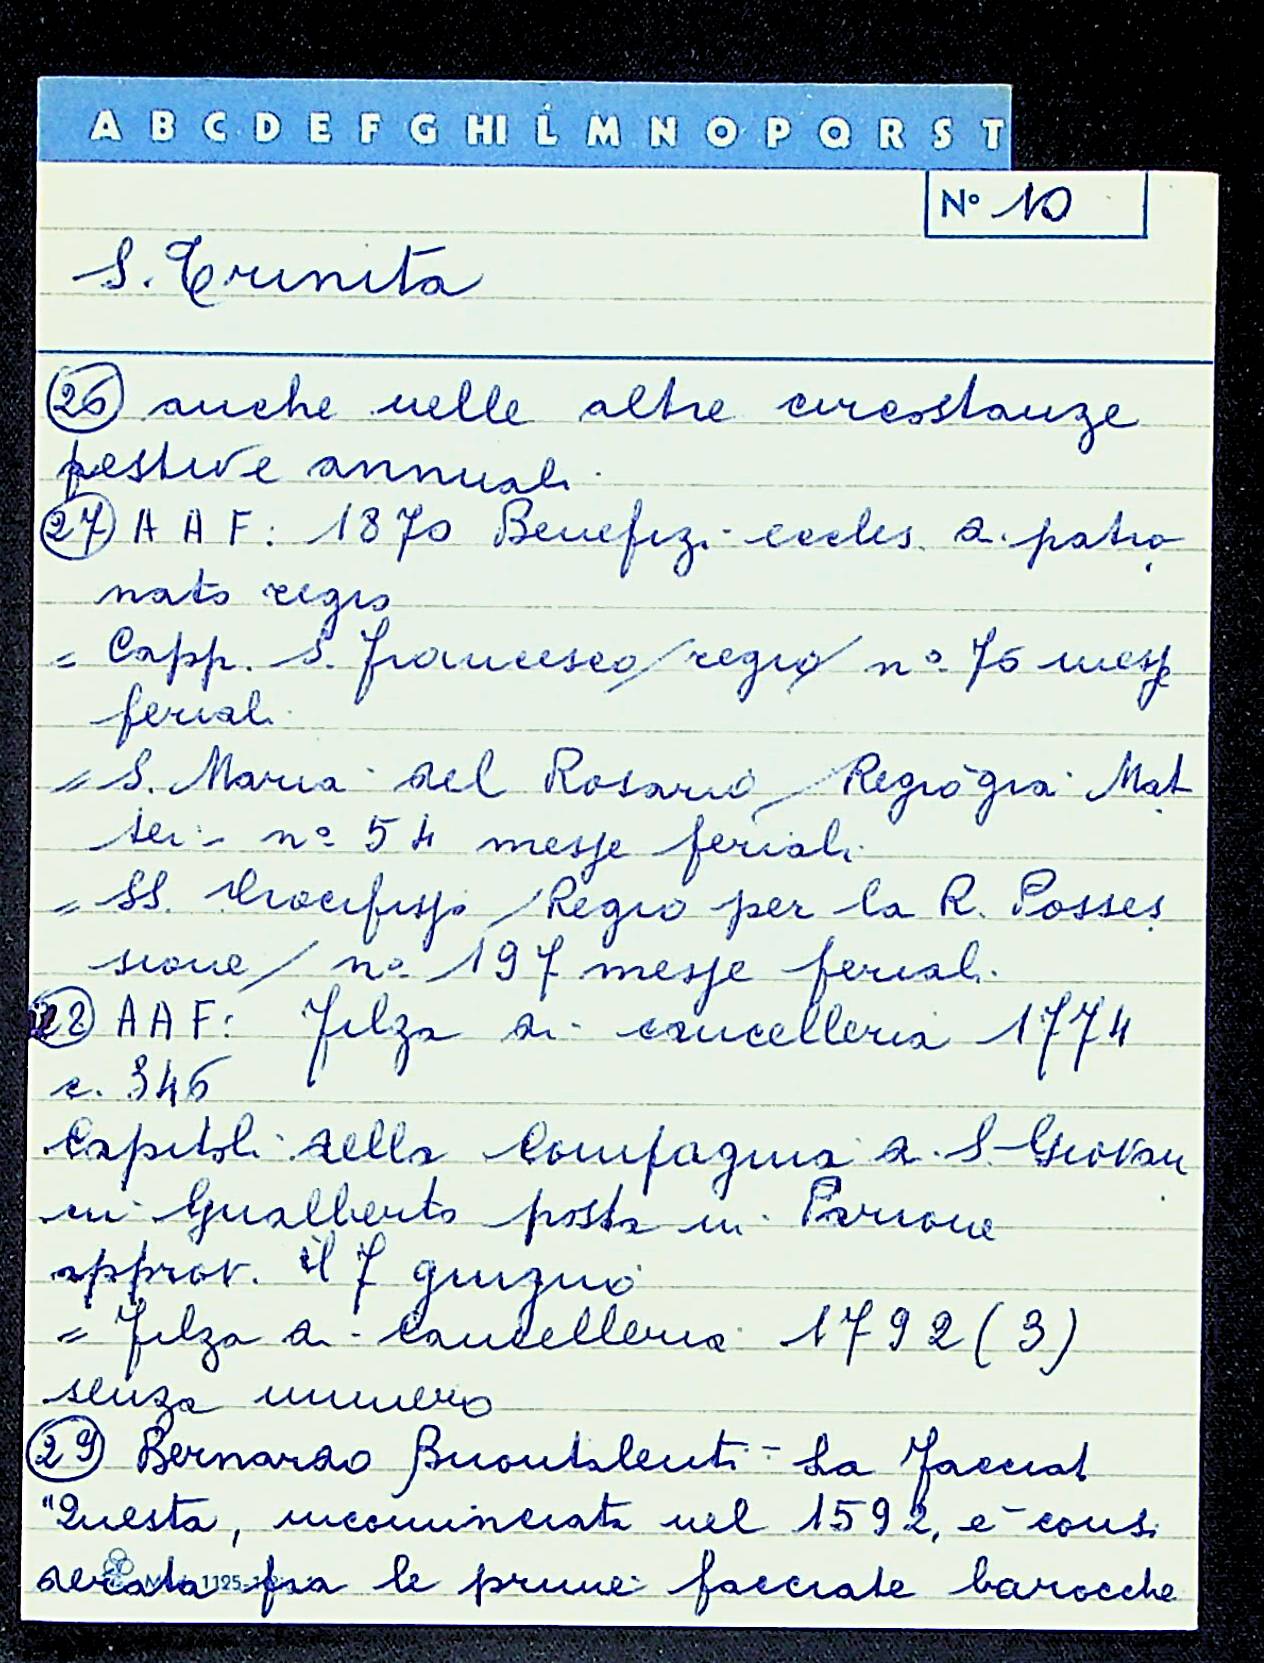 A B C D E F G HI L M N O P Q R S T
N° 10
S. Trinita
(26) anche nelle altre circostanze
festive annuali.
(27) A A F: 1870 Benefizi eccles. di patro
nato regio
= Capp. S. Francesco/regio/ n° 76 messe
feriali
= S. Maria del Rosario / Regio già Mat
tei - n° 54 messe feriali
= SS. Crocifisso /Regio per la R. Posses
sione/ n° 197 messe feriali.
(28) A A F: Filza di cancelleria 1774
c. 346
Capitoli della Compagnia di S. Giovan
ni Gualberto posta in Parione
approv. il 7 giugno
= Filza di cancelleria 1792 (3)
senza numero
(29) Bernardo Buontalenti = La Facciat
"Questa, incominciata nel 1592, è consi
derata fra le prime facciate barocche